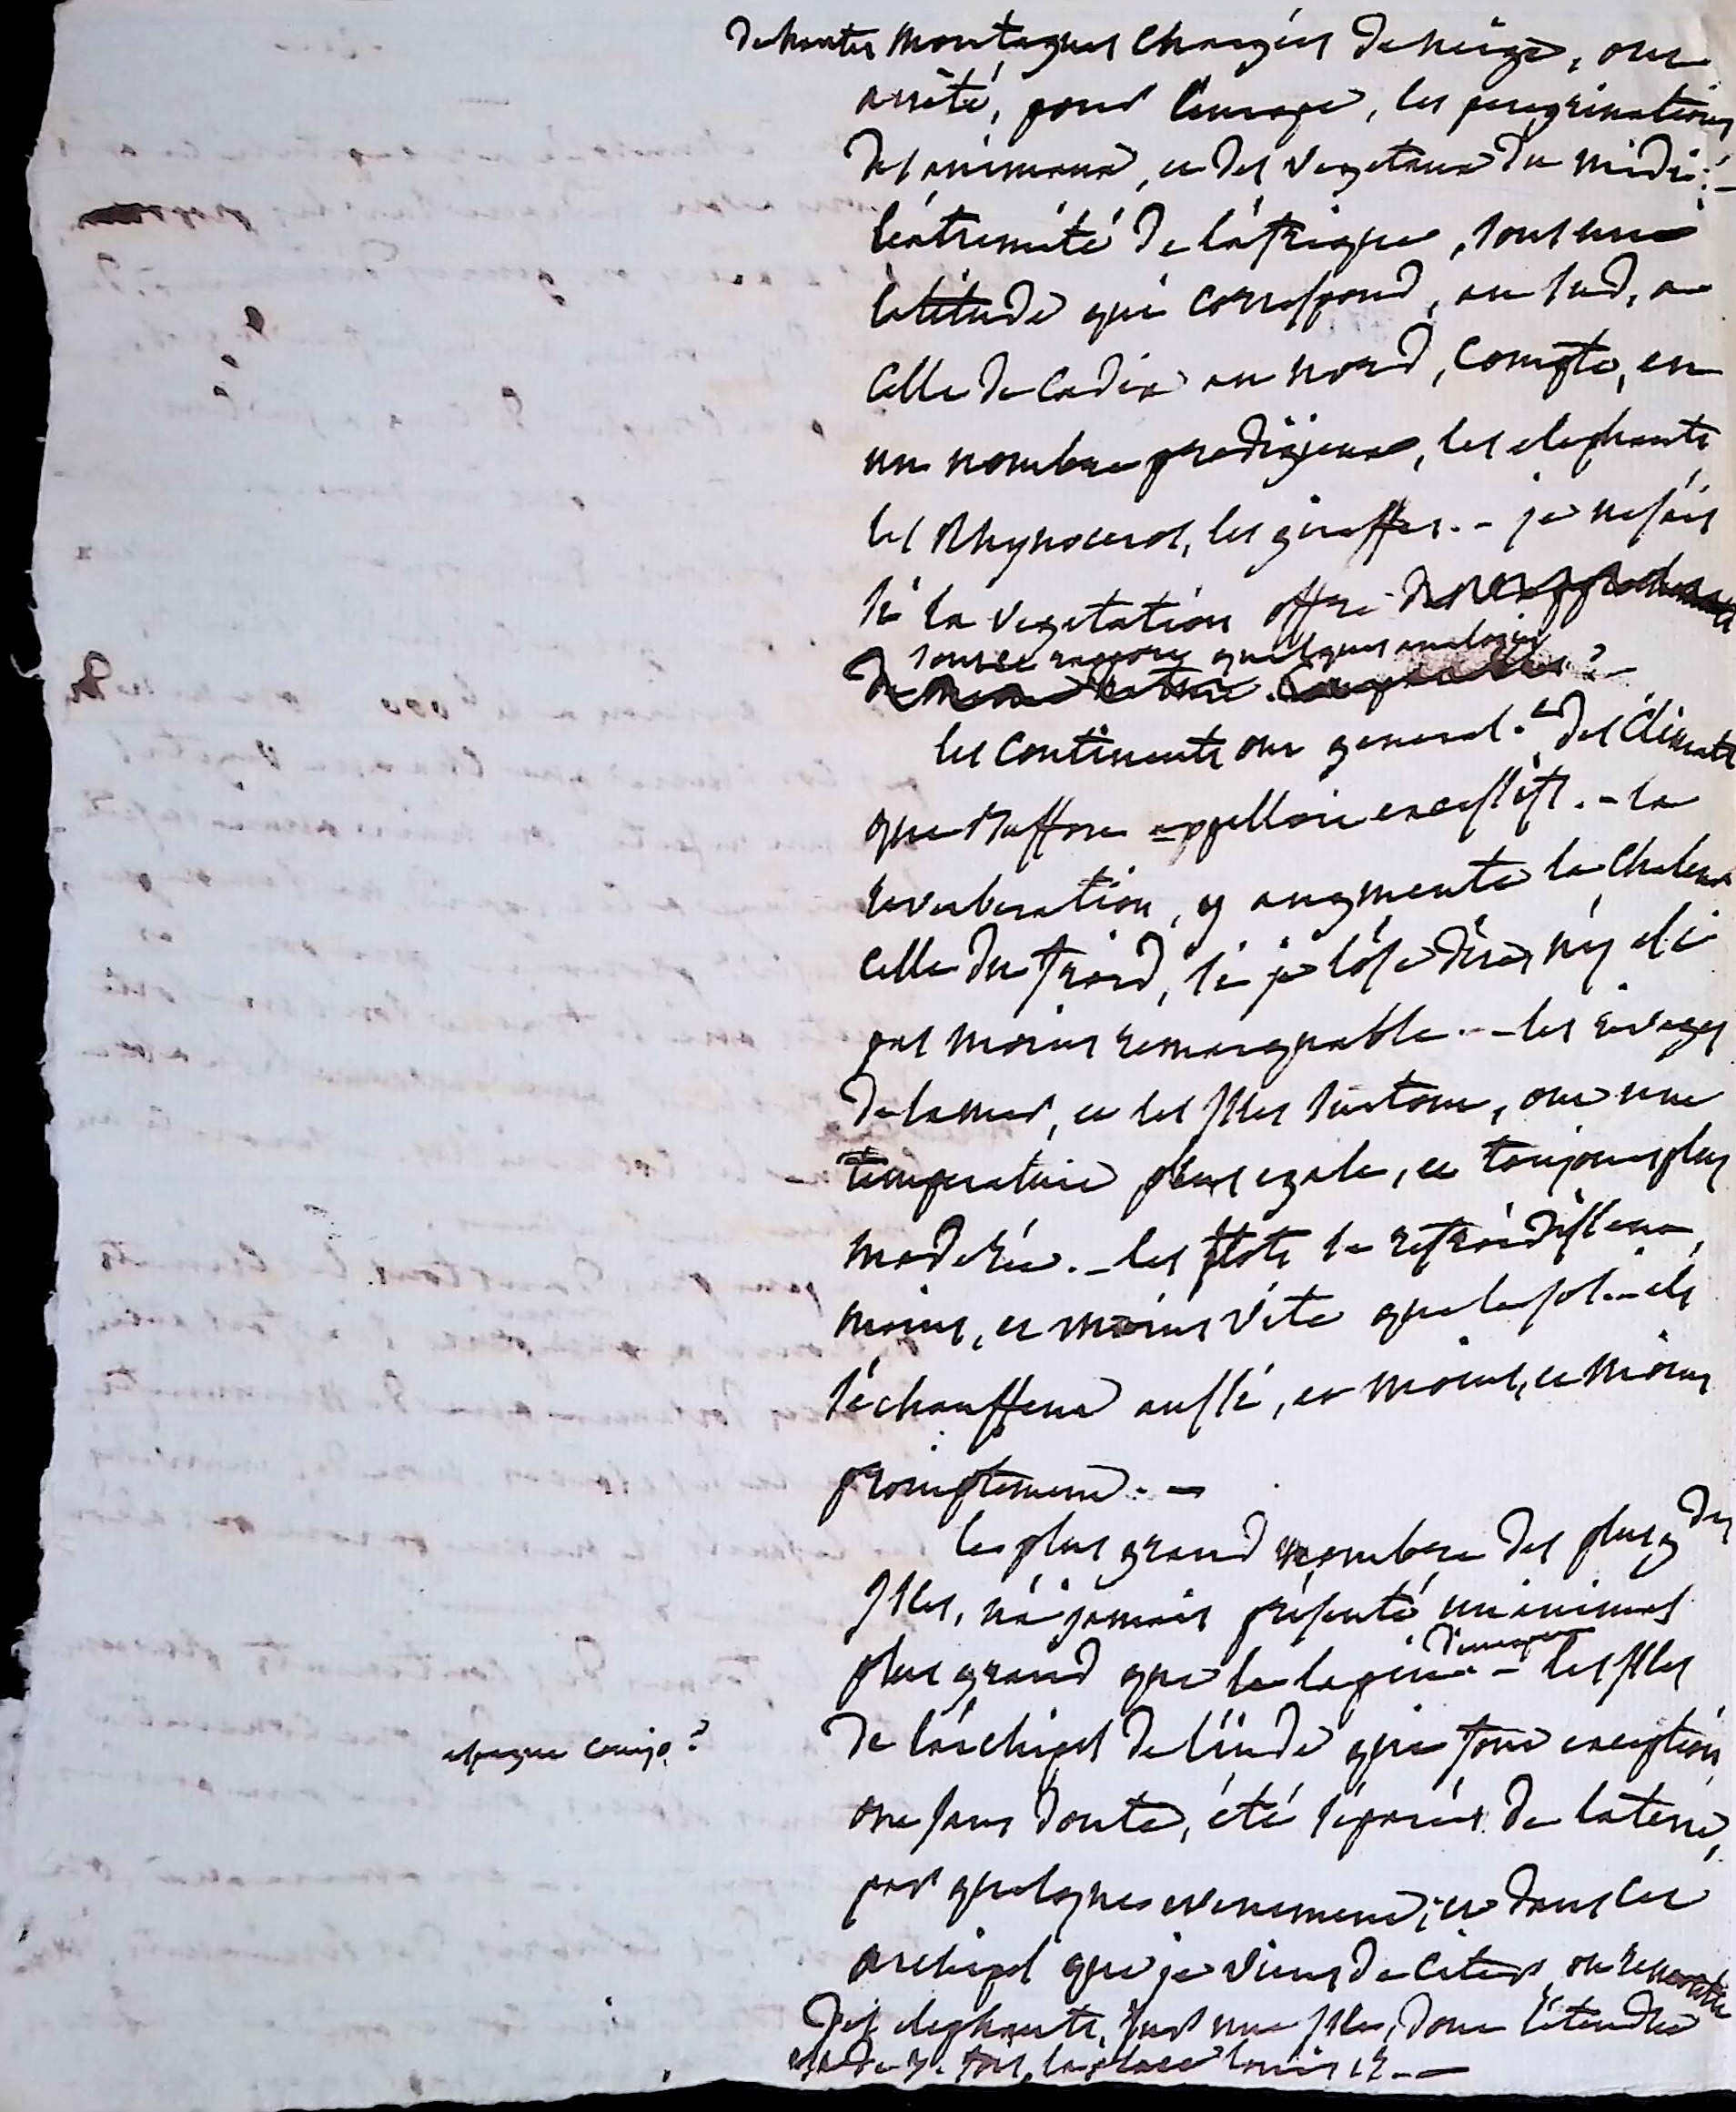 de hautes montagnes chargées de neige, ont
arrêté, pour l'europe, les peregrinations
des animaux, et des vegetaux du midi. -
l'extremité de l'afrique, sous une
latitude qui correspond, au sud, a
celle de cadix au nord, compte, en
un nombre prodigieux, les elephants
les Rhynoceros, les giraffes. - je ne sais
si la vegetation offre
sous ce rapport quelques analogies ? -
les continents ont general.t des climats
que Buffon appelloit excessifs. - la
reverberation, y augmente la chaleur
celle du froid, si je l'ose dire, n'y est
pas moins remarquable. - les rivages
de la mer, et les isles surtout, ont une
temperature plus egale, et toujours plus
moderée. - les flots se refroidissent,
moins, et moins vite que le sol. - ils
s'echauffent aussi, et moins, et moins
promptement. -
le plus grand nombre des plus gdes
isles, n'a jamais présenté un animal
plus grand que le lapin. - les isles
de l'archipel de l'inde qui font exception,
ont sans doute, été séparées de la terre,
par quelques evenement ; et dans cet
archipel que je viens de citer, on rencontre
des elephants, sur une isle, dont l'étendue
est de 3. fois, la place louis 15. -